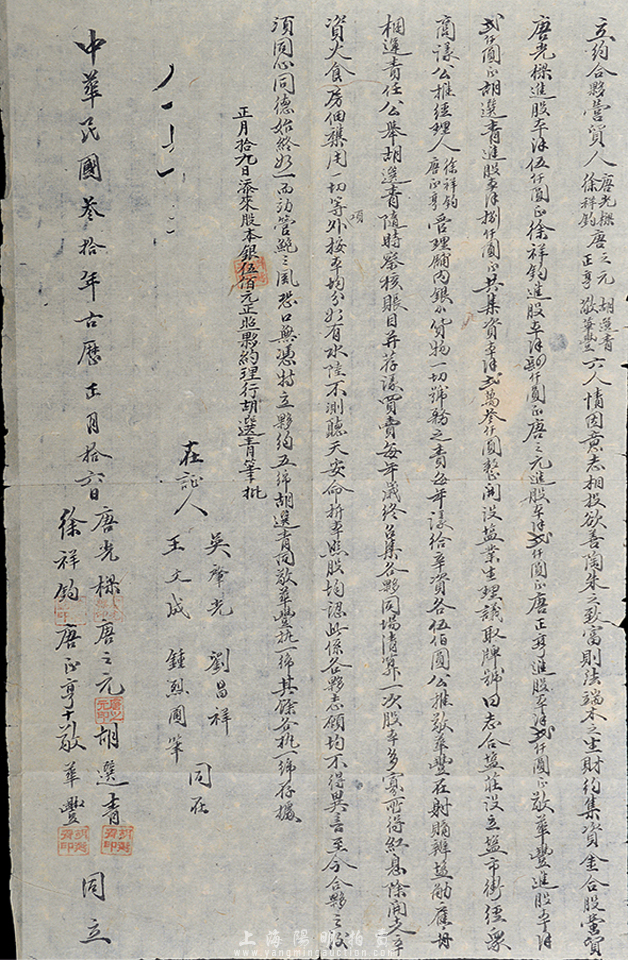 立約合夥營貿人唐光樑 徐祥鈞 唐之元 正亨 胡選青 敬華豐六人情因意志相投欲善陶朱之致富則法端木之生財約集資金合股營貿
唐光樑進股本洋伍仟圓正徐祥鈞進股本洋四仟圓正唐之元進股本洋弍仟圓正唐正亨進股本洋弍仟圓正敬華豐進股本洋
弍仟圓正胡選青進股本洋捌仟圓正共集資本洋弍萬叁仟圓整開設鹽業生理議取牌號曰志合鹽莊設立鹽市街經衆
商議公推經理人徐祥鈞 唐正亨管理鋪內銀水貨物一切號務之責每年議給辛資各伍佰圓公推敬華豐在射購辦鹽觔應毋
相選責任公舉胡選青隨時察核賬目并存議買賣每年歲終召集各夥同場清算一次股本多寡所得紅息除開支辛
資火食房佃雜用一切等項外按本均分如有水陸不測聽天安命折本照股均認此係各夥志願均不得異言至分合夥之後
須同心同德始終如一而効管鮑之風恐口無憑特立夥約五紙胡選青同敬華豐執一紙其餘各執一紙存據
正月拾九日添來股本銀伍佰元正照夥約理行胡選青筆批
在証人 吳肇光 劉昌祥 王文成 鍾烈圃筆 同在
中華民國叁拾年古歷正月拾六日唐光樑 唐之元 胡選青 徐祥鈞 唐正亨 敬華豐 同立
上海陽明拍賣
www.yangmingauction.com